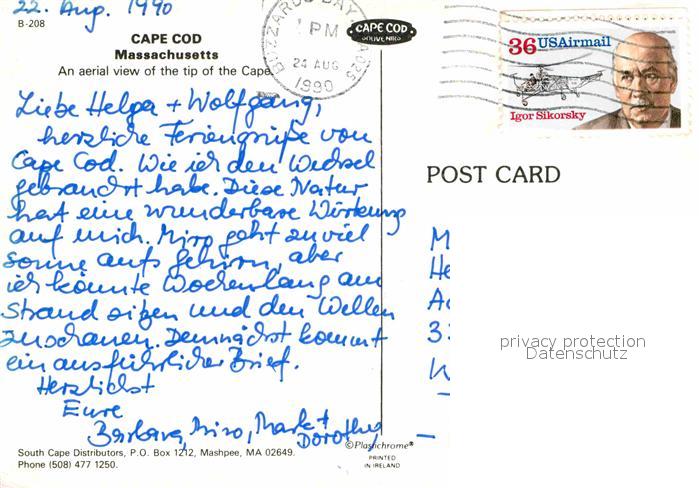 22. Aug. 1990
B-208
CAPE COD
Massachusetts
An aerial view of the tip of the Cape.
BUZZARDS BAY
PM
24 AUG
1990
CAPE COD
SOUVENIRS
36 USAirmail
Igor Sikorsky
POST CARD
Liebe Helga + Wolfgang,
herzliche Feriengrüße von
Cape Cod. Wie ich den Wechsel
gebraucht habe. Diese Natur
hat eine wunderbare Wirkung
auf mich. Miro geht zu viel
Sonne aufs Gehirn, aber
ich könnte Wochenlang am
Strand sitzen und den Wellen
zuschauen. Demnächst kommt
ein ausführlicher Brief.
Herzlichst
Eure
Barbara, Miro, Mark +
Dorothy
M
He
3
privacy protection
Datenschutz
©Plastichrome®
PRINTED
IN IRELAND
South Cape Distributors, P.O. Box 1212, Mashpee, MA 02649.
Phone (508) 477 1250.